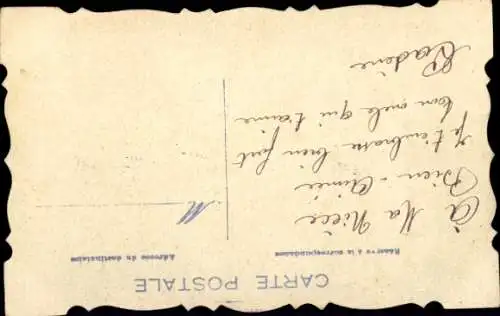 CARTE POSTALE
Réservé à la correspondance
Adresse du destinataire
À Ma Nièce
Bien-Aimée
Je t'embrasse bien fort
ton oncle qui t'aime
M